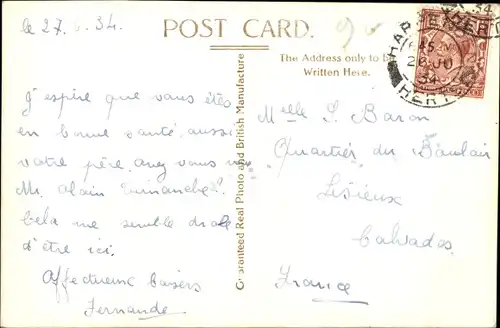 le 27. 6. 34.
POST CARD.
The Address only to be
Written Here.
HARPENDEN
HERTS
J'espère que vous êtes
en bonne santé, aussi
votre père, avez vous vu
Mr. Alain Dimanche?
Cela me semble drôle
d'être ici.
Affectueux baisers
Fernande.
Guaranteed Real Photo and British Manufacture
Melle S. Baron
Quartier du
Lisieux
Calvados
France